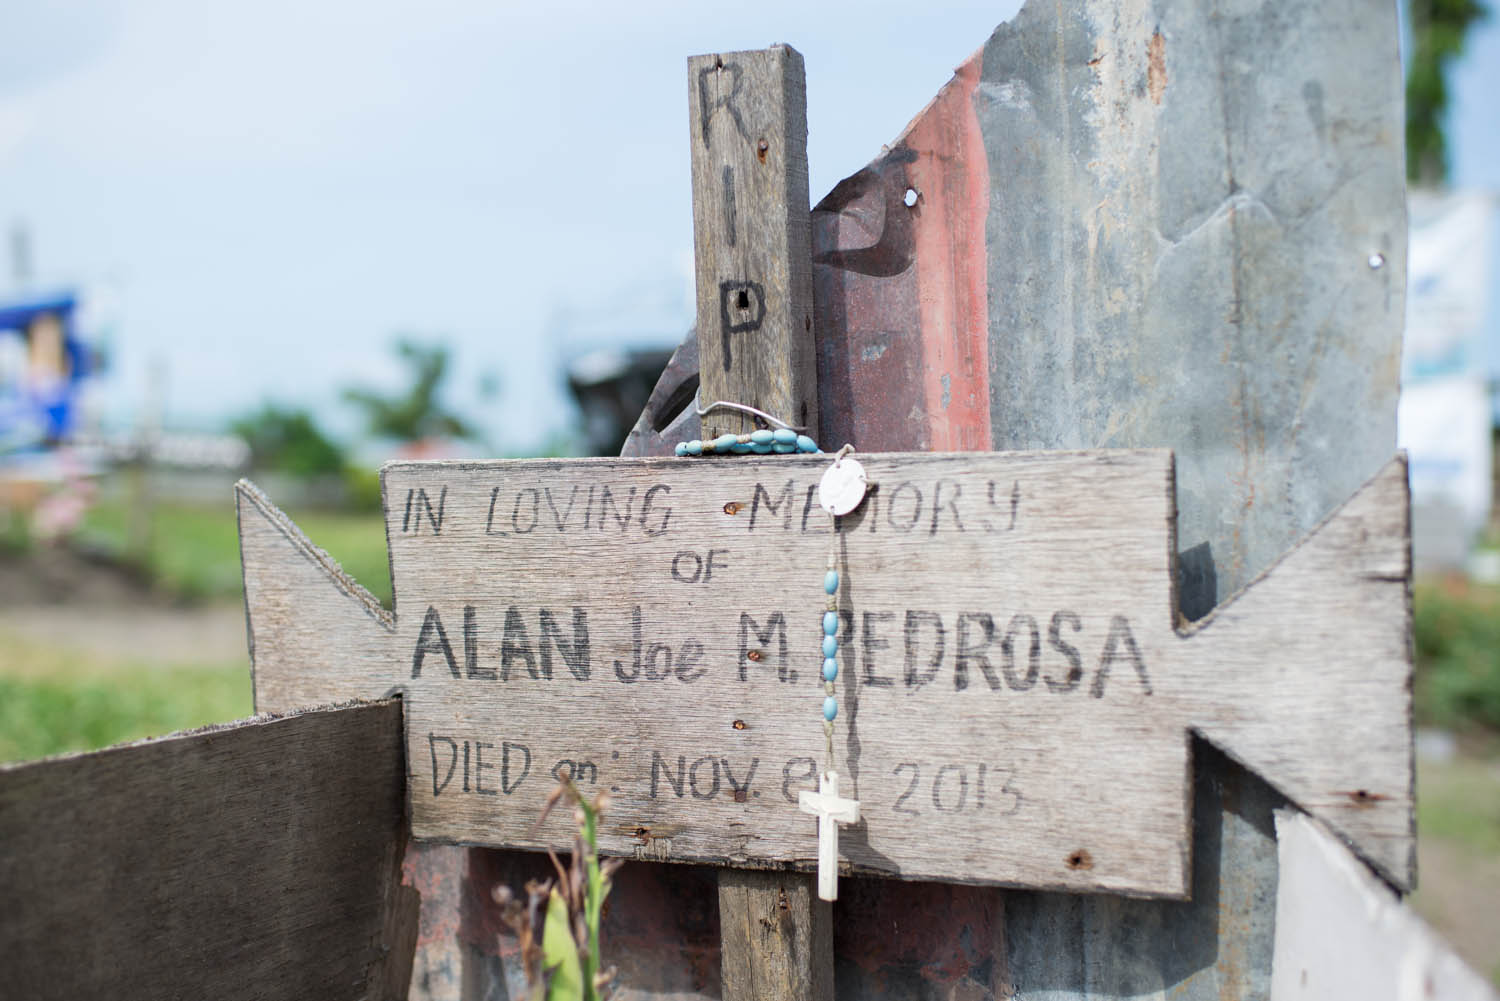 RIP
IN LOVING MEMORY
OF
ALAN Joe M. PEDROSA
DIED on: NOV. 8 2013